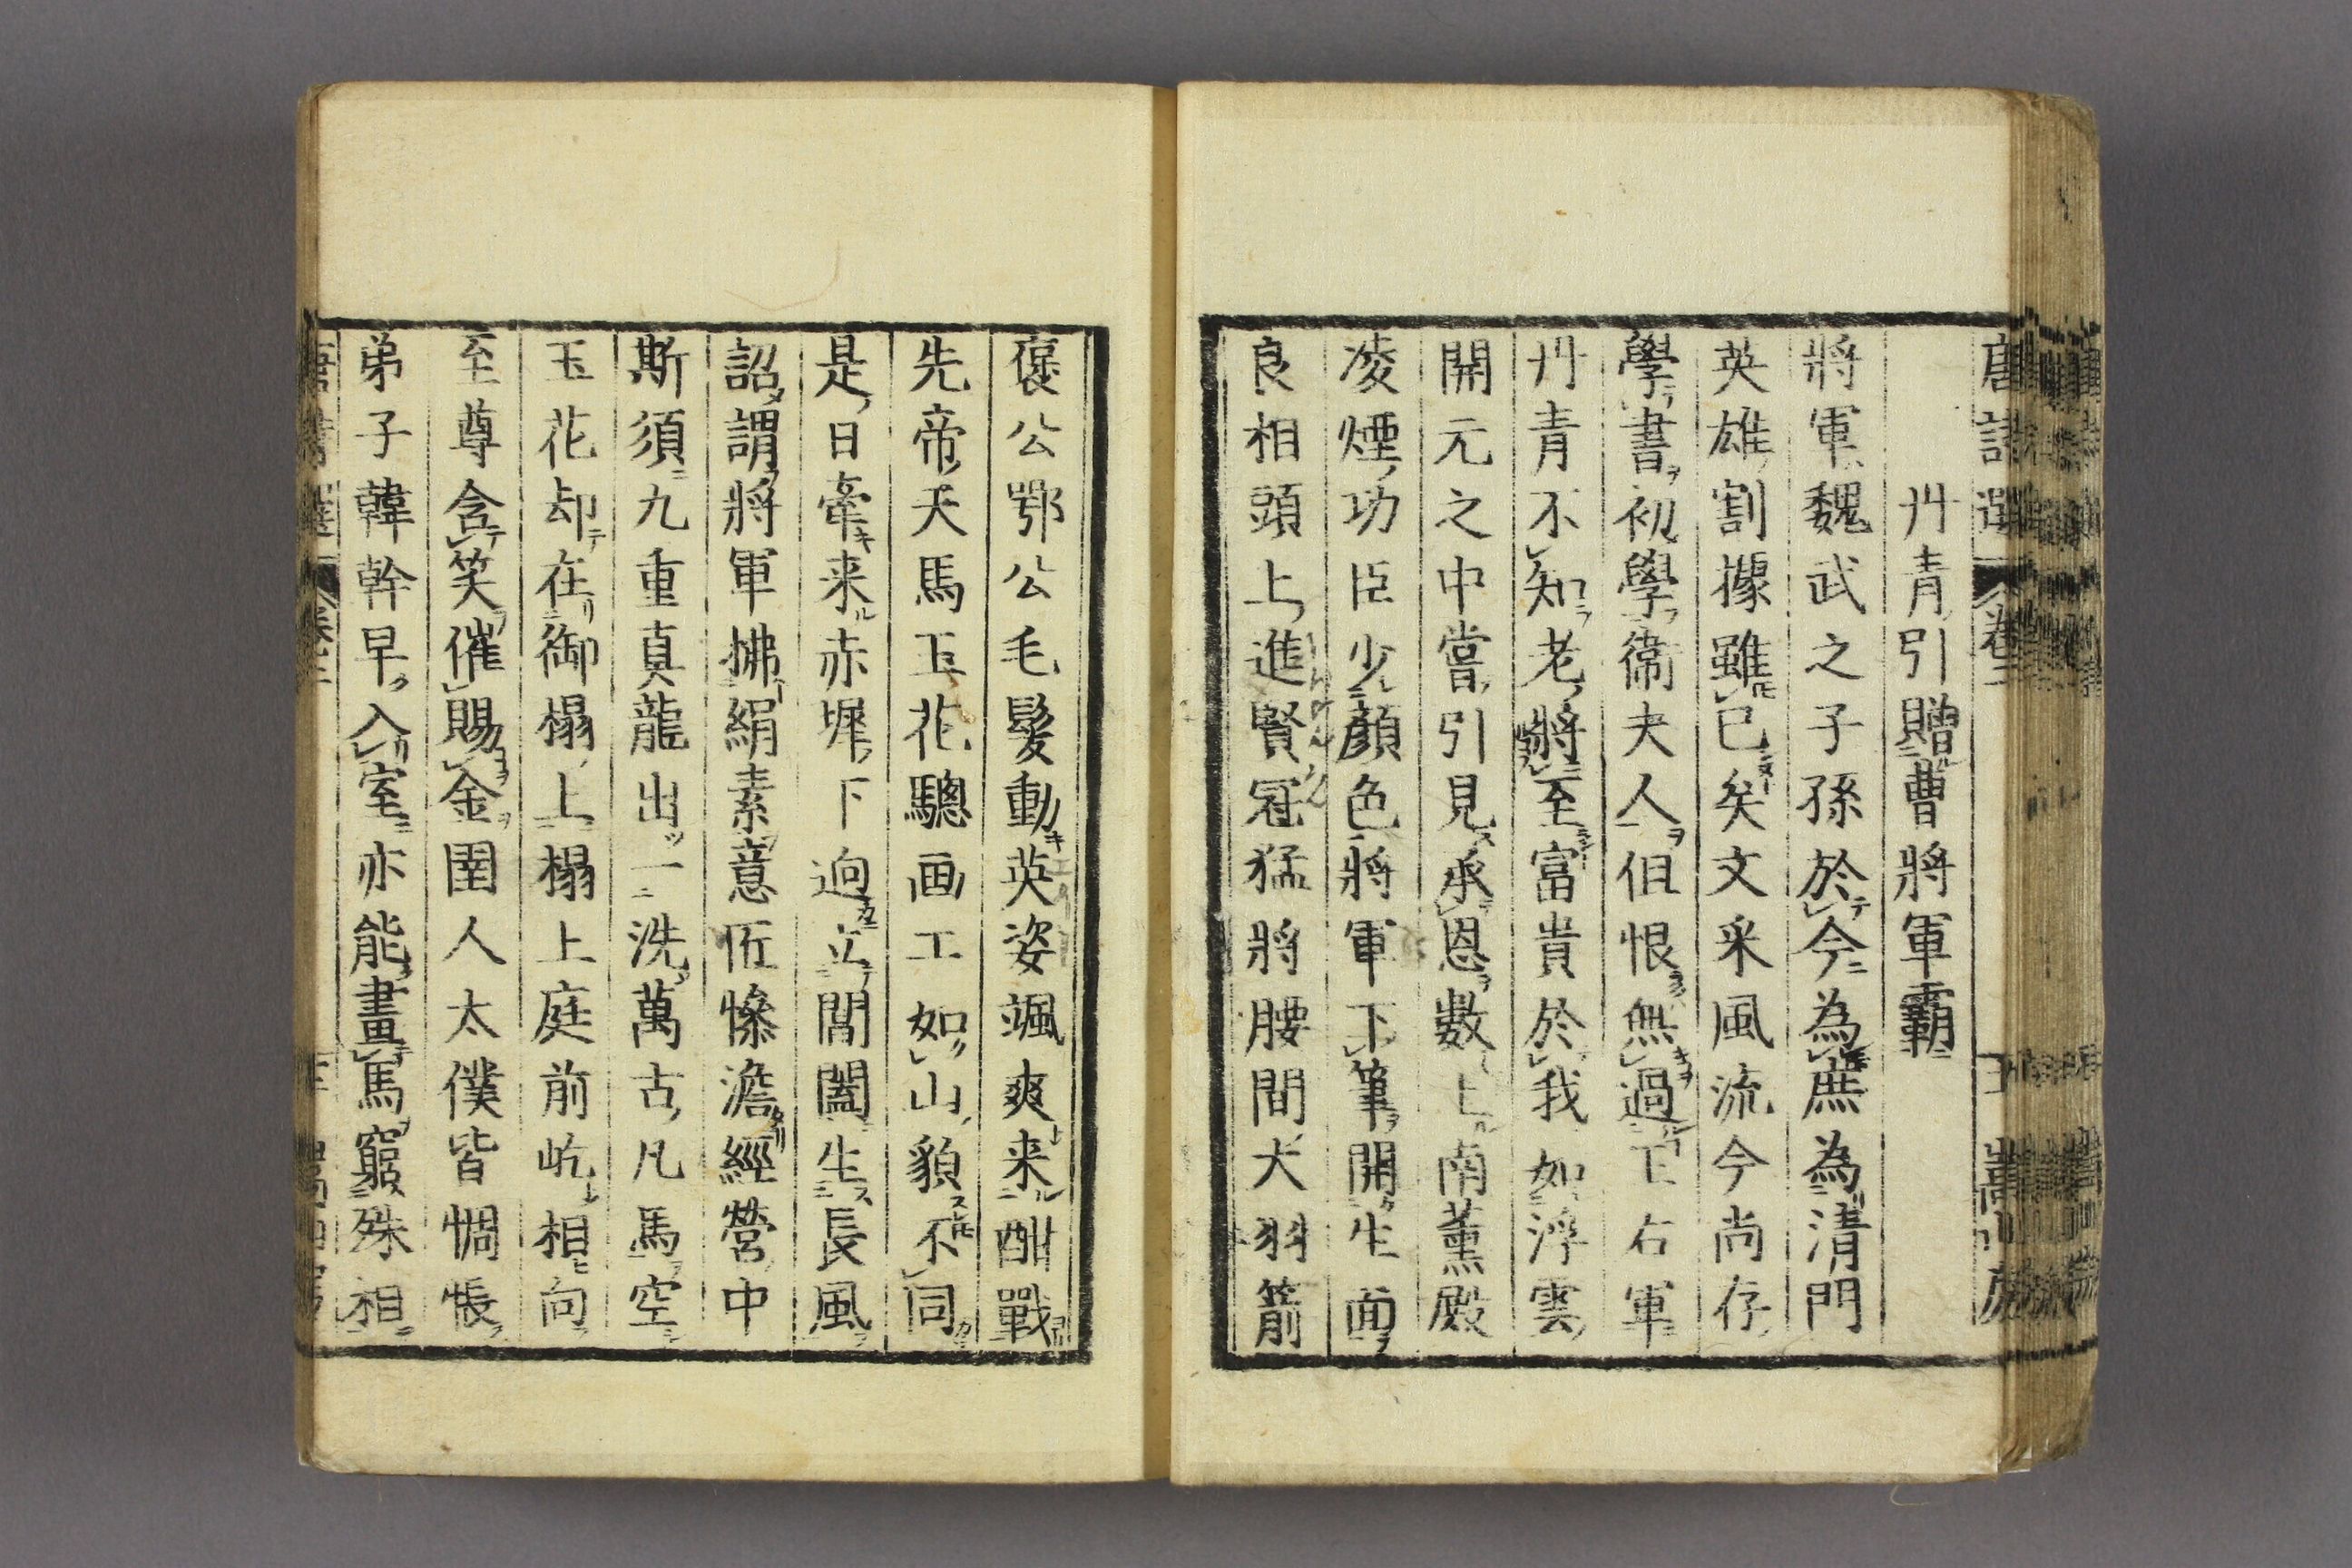 唐詩選 卷二 嵩山房
丹青引贈曹將軍霸
將軍魏武之子孫於今為庶為清門
英雄割據雖已矣文采風流今尚存
學書初學衛夫人但恨無過王右軍
丹青不知老將至富貴於我如浮雲
開元之中嘗引見承恩數上南薰殿
凌煙功臣少顏色將軍下筆開生面
良相頭上進賢冠猛將腰間大羽箭
褒公鄂公毛髮動英姿颯爽来酣戰
先帝天馬玉花驄画工如山貌不同
是日牽来赤墀下迥立閶闔生長風
詔謂將軍拂絹素意匠慘澹經營中
斯須九重真龍出一洗萬古凡馬空
玉花却在御榻上榻上庭前屹相向
至尊含笑催賜金圉人太僕皆惆悵
弟子韓幹早入室亦能畫馬窮殊相